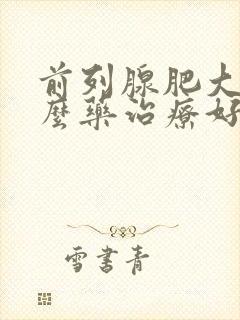 前列腺肥大
麼藥治療好
雪書青